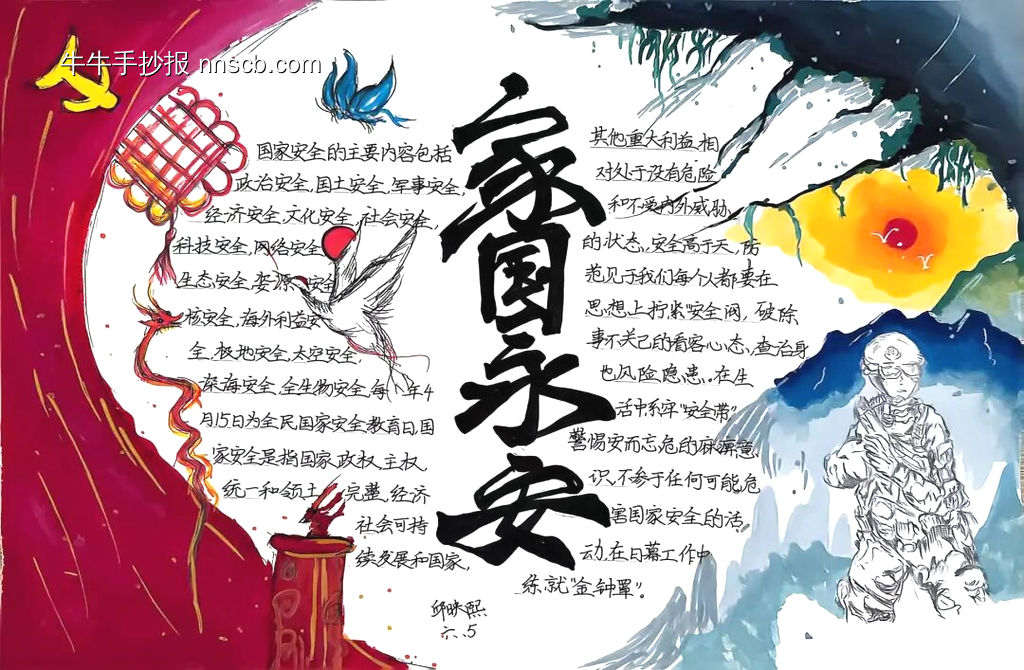 牛牛手抄报 nnscb.com
家国永安
国家安全的主要内容包括
政治安全,国土安全,军事安全,
经济安全,文化安全,社会安全,
科技安全,网络安全
生态安全,资源 安全
核安全,海外利益安
全,极地安全,太空安全,
深海安全,全生物安全,每 年4
月15日为全民国家安全教育日,国
家安全是指国家政权、主权、
统一和领土 完整、经济
社会可持
续发展和国家,
其他重大利益相
对处于没有危险
和不受内外威胁
的状态,安全高于天,防
范见于我们每个人都要在
思想上拧紧"安全阀,破除
事不关己的看客心态,查治身
也风险隐患。在生
活中系牢"安全带"
警惕安而忘危的麻痹意
识,不参于任何可能危
害国家安全的活
动,在日幕工作中
练就"金钟罩"。
邱映熙
六.5